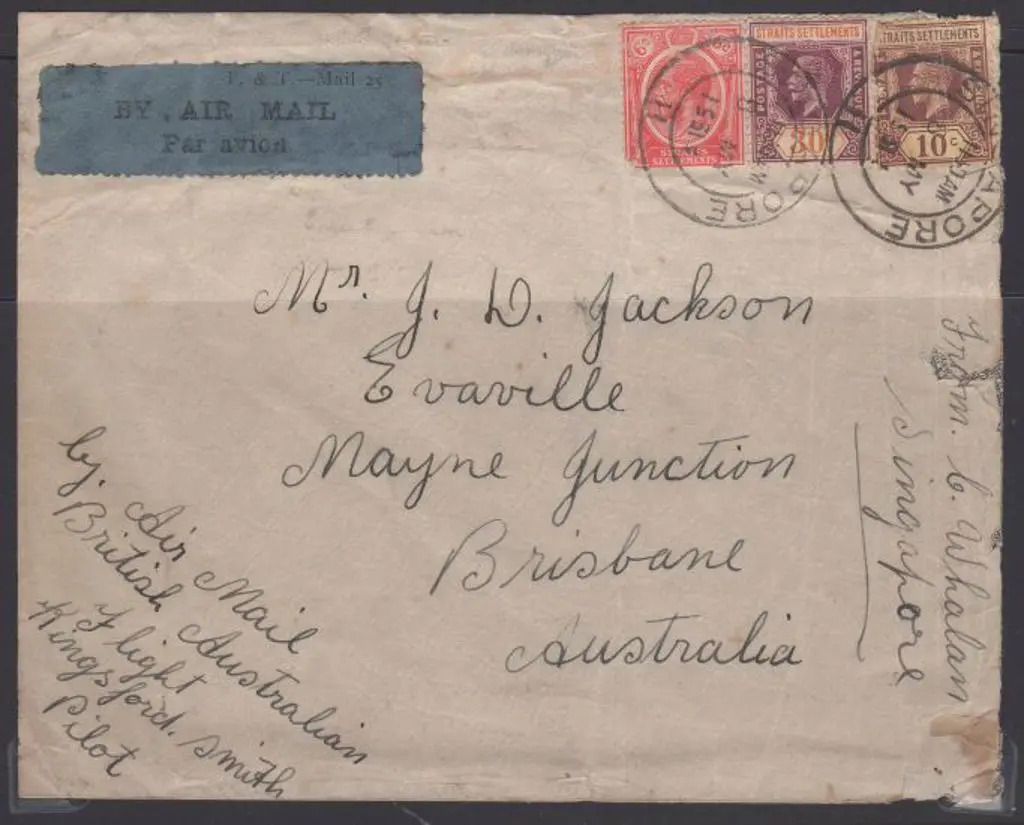 P. & T.—Mail 25
BY AIR MAIL
Par avion
6c
STRAITS
SETTLEMENTS
STRAITS SETTLEMENTS
POSTAGE
30
STRAITS SETTLEMENTS
10c
SINGAPORE
Mr. J. D. Jackson
Evaville
Mayne Junction
Brisbane
Australia
by. Air Mail
British Australian
Flight
Kingsford. Smith
Pilot
From. C. Whalan
Singapore